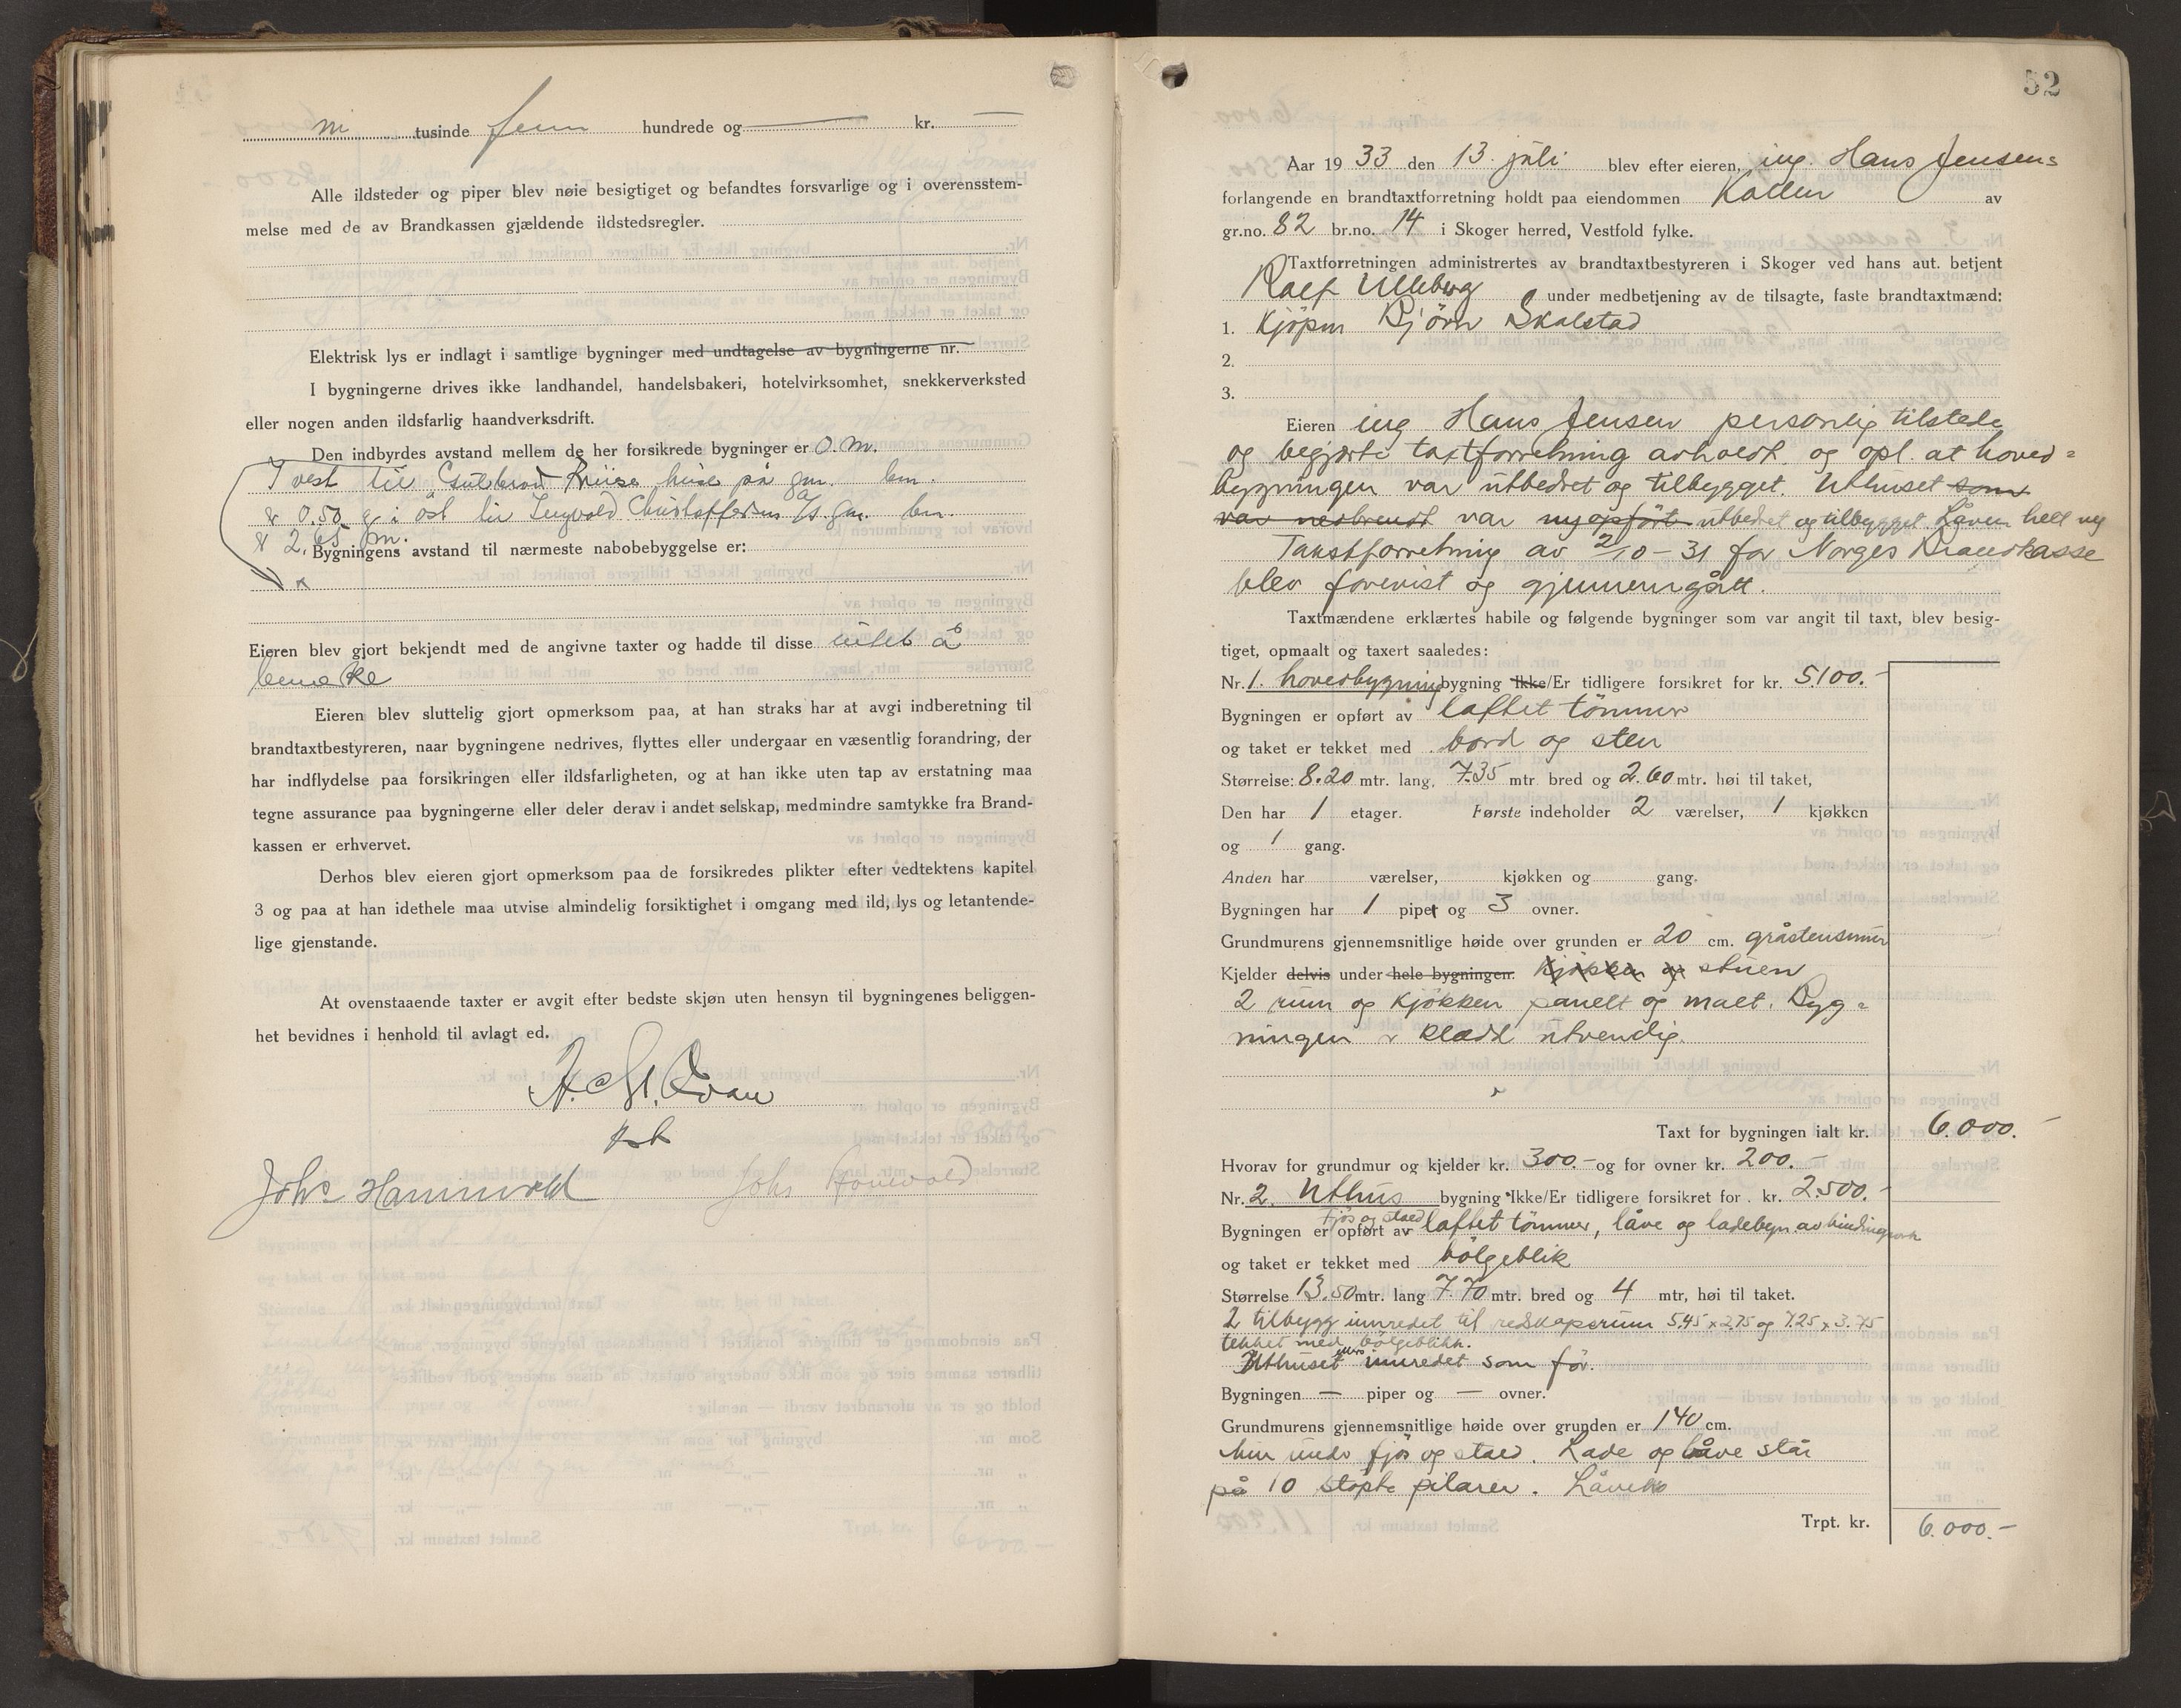 ni tusinde fem hundrede og — kr. —
Alle ildsteder og piper blev nøie besigtiget og befandtes forsvarlige og i overensstem-
melse med de av Brandkassen gjældende ildstedsregler.
Elektrisk lys er indlagt i samtlige bygninger med undtagelse av bygningerne nr.
I bygningerne drives ikke landhandel, handelsbakeri, hotelvirksomhet, snekkerverksted
eller nogen anden ildsfarlig haandverksdrift.
Den indbyrdes avstand mellem de her forsikrede bygninger er 0. m.
I vest til Gulbrand hus på gm. bm.
er 0.50 i öst til Ingvald Christoffersen gm. bm.
er 2.65 m.
Bygningens avstand til nærmeste nabobebyggelse er:
x
Eieren blev gjort bekjendt med de angivne taxter og hadde til disse intet å
bemerke
Eieren blev sluttelig gjort opmerksom paa, at han straks har at avgi indberetning til
brandtaxtbestyreren, naar bygningene nedrives, flyttes eller undergaar en væsentlig forandring, der
har indflydelse paa forsikringen eller ildsfarligheten, og at han ikke uten tap av erstatning maa
tegne assurance paa bygningerne eller deler derav i andet selskap, medmindre samtykke fra Brand-
kassen er erhvervet.
Derhos blev eieren gjort opmerksom paa de forsikredes plikter efter vedtektens kapitel
3 og paa at han idethele maa utvise almindelig forsiktighet i omgang med ild, lys og letantende-
lige gjenstande.
At ovenstaaende taxter er avgit efter bedste skjøn uten hensyn til bygningenes beliggen-
het bevidnes i henhold til avlagt ed.
Johs Hannevold Johs Hanevold
52
Aar 1933 den 13. juli blev efter eieren, ing. Hans Jensens
forlangende en brandtaxtforretning holdt paa eiendommen Kallum av
gr.no. 82 br.no. 14 i Skoger herred, Vestfold fylke.
Taxtforretningen administrertes av brandtaxtbestyreren i Skoger ved hans aut. betjent
Ralf Ulleberg under medbetjening av de tilsagte, faste brandtaxtmænd:
1. Kjöpm Björn Skalstad
2.
3.
Eieren ing Hans Jensen personlig tilstede
og begjærte taxtforretning avholdt og opl. at hoved=
bygningen var utbedret og tilbygget. Uthuset som
var nedbrendt var nyopfört utbedret og tilbygget. Låven helt ny
Takstforretning av 2/10-31 for Norges Brandkasse
blev forevist og gjennemgått.
Taxtmændene erklærtes habile og følgende bygninger som var angit til taxt, blev besig-
tiget, opmaalt og taxert saaledes:
Nr. 1. hovedbygning bygning Ikke/Er tidligere forsikret for kr. 5100.-
Bygningen er opført av laftet tömmer
og taket er tekket med bord og sten
Størrelse: 8.20 mtr. lang, 7.35 mtr bred og 2.60 mtr. høi til taket,
Den har 1 etager. Første indeholder 2 værelser, 1 kjøkken
og 1 gang.
Anden har værelser, kjøkken og gang.
Bygningen har 1 piper og 3 ovner.
Grundmurens gjennemsnitlige høide over grunden er 20 cm. gråstensmur
Kjelder delvis under hele bygningen. Kjökken og stuen
2 rum og kjökken panelt og malt. Byg=
ningen er klædd utvendig.
Taxt for bygningen ialt kr. 6.000.-
Hvorav for grundmur og kjelder kr. 300.- og for ovner kr. 200.-
Nr. 2. Uthus bygning Ikke/Er tidligere forsikret for kr. 2.500.-
Fjös og stald
Bygningen er opført av laftet tömmer, låve og ladebygn. av bindingverk
og taket er tekket med bölgeblik
Størrelse 13.50 mtr. lang 7.70 mtr. bred og 4 mtr, høi til taket.
2 tilbygg innredet til redskapsrum 5.45 x 2.75 og 7.25 x 3.75
tekket med bölgeblikk.
Uthuset ellers innredet som för.
Bygningen — piper og — ovner.
Grundmurens gjennemsnitlige høide over grunden er 140 cm.
mur under fjös og stald. Lade og låve står
på 10 stöpte pilarer. Låven
Trpt. kr. 6.000.-